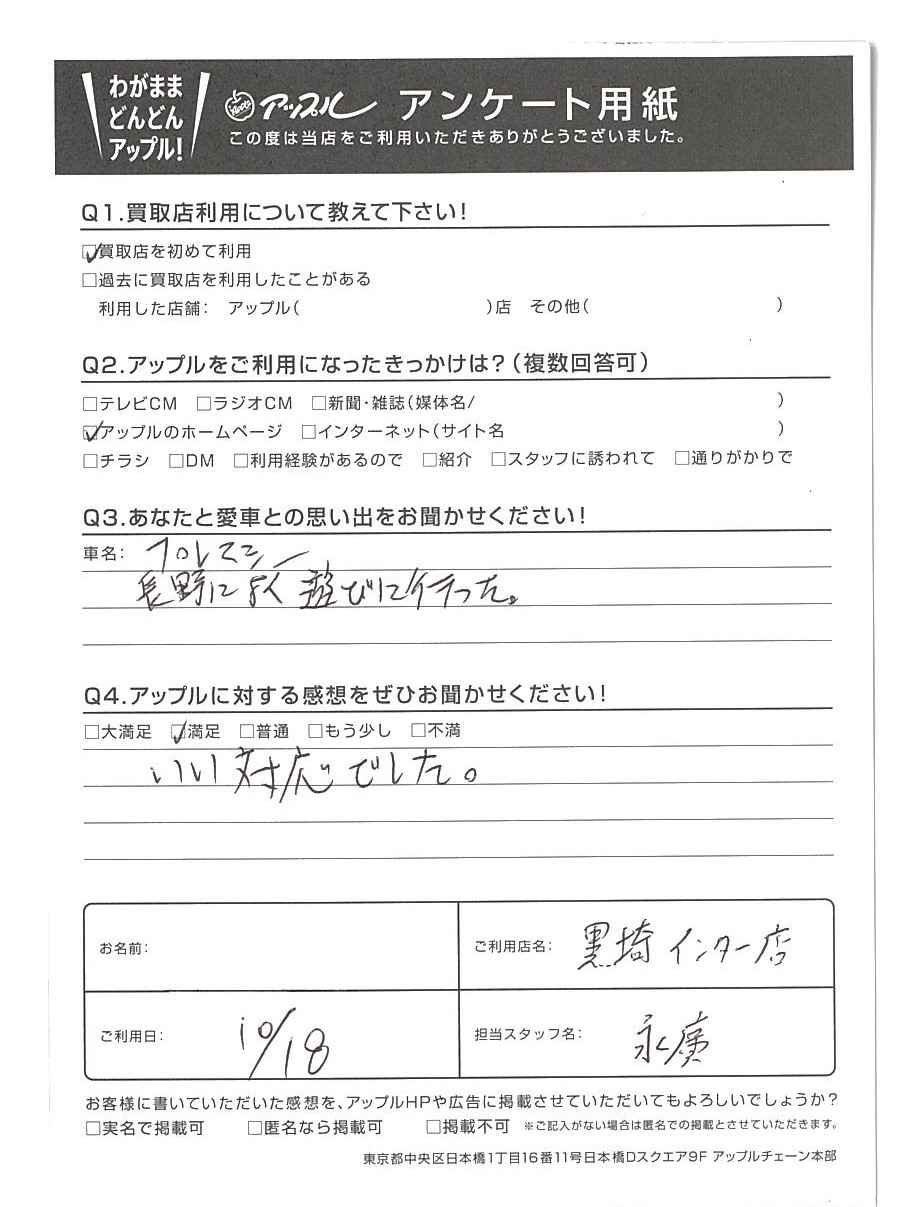 わがまま
どんどん
アップル!
アップル アンケート用紙
この度は当店をご利用いただきありがとうございました。
Q1.買取店利用について教えて下さい!
☑買取店を初めて利用
□過去に買取店を利用したことがある
利用した店舗: アップル( )店 その他( )
Q2.アップルをご利用になったきっかけは?(複数回答可)
□テレビCM □ラジオCM □新聞・雑誌(媒体名/ )
☑アップルのホームページ □インターネット(サイト名 )
□チラシ □DM □利用経験があるので □紹介 □スタッフに誘われて □通りがかりで
Q3.あなたと愛車との思い出をお聞かせください!
車名: プレマシー
長野によく遊びに行った。
Q4.アップルに対する感想をぜひお聞かせください!
□大満足 ☑満足 □普通 □もう少し □不満
いい対応でした。
お名前:
ご利用店名: 黒埼インター店
ご利用日: 10/18
担当スタッフ名: 永廣
お客様に書いていただいた感想を、アップルHPや広告に掲載させていただいてもよろしいでしょうか?
□実名で掲載可 □匿名なら掲載可 □掲載不可 ※ご記入がない場合は匿名での掲載とさせていただきます。
東京都中央区日本橋1丁目16番11号日本橋Dスクエア9F アップルチェーン本部